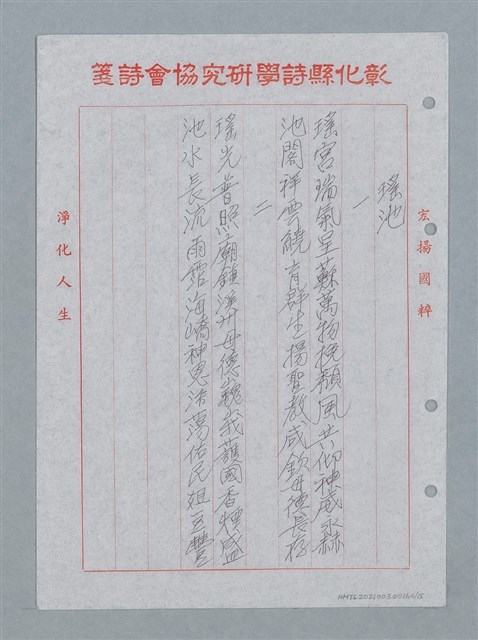 彰化縣詩學研究協會詩箋
宏揚國粹
瑤池
一
瑤宮瑞氣呈蘇萬物挽頹風共仰神威永赫
池閣祥雲繞育群生揚聖教咸欽母德長存
二
瑤光普照廟鎮溪州母德巍峩護國香煙盛
池水長流雨霑海嶠神恩浩蕩佑民俎豆豐
淨化人生